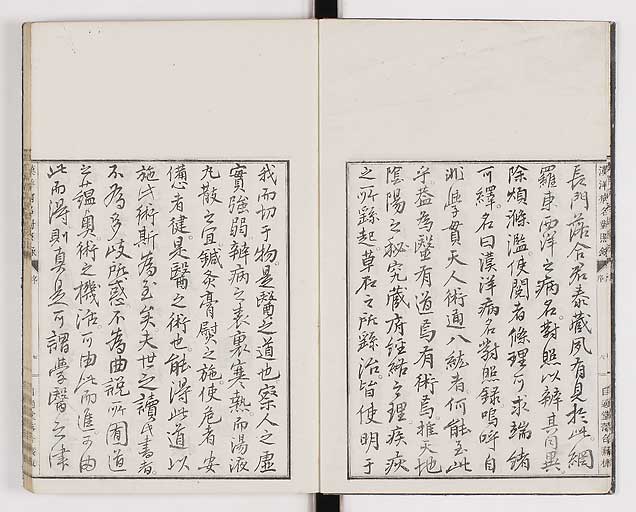 長門落合君泰藏夙有見於此網
羅東西洋之病名對照以辨其同異
除煩滌濫使閲者條理可求端緒
可繹名曰漢洋病名對照録嗚呼自
非學貫天人術通八紘者何能至此
乎葢爲醫有道焉有術焉推天地
陰陽之秘究藏府經絡之理疾疢
之所繇起草石之所繇治皆使明于
我而切于物是醫之道也察人之虚
實強弱辨病之表裏寒熱而湯液
丸散之宜鍼灸膏熨之施使危者安
憊者健是醫之術也能得此道以
施此術斯爲至矣夫世之讀此書者
不爲多歧所惑不爲曲説所囿道
之蘊奥術之機活可由此而進可由
此而得則眞是可謂學醫之津
漢洋病名對照録
序
序